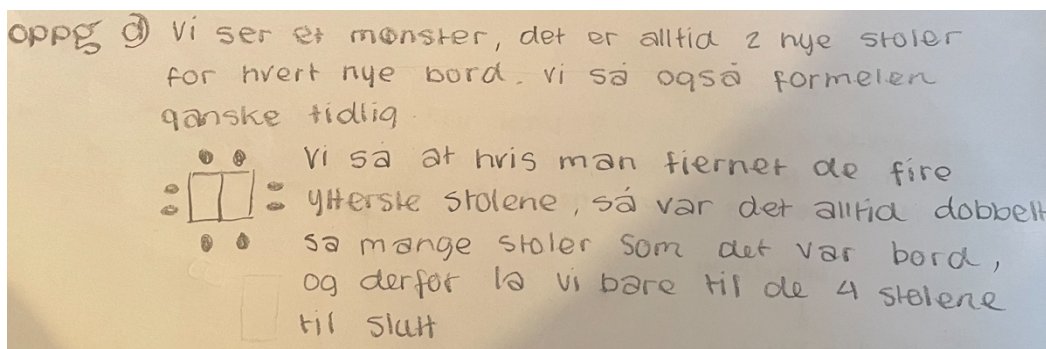 oppg d) Vi ser et mønster, det er alltid 2 nye stoler
for hvert nye bord. Vi så også formelen
ganske tidlig.
Vi så at hvis man fjernet de fire
ytterste stolene, så var det alltid dobbelt
så mange stoler som det var bord,
og derfor la vi bare til de 4 stolene
til slutt